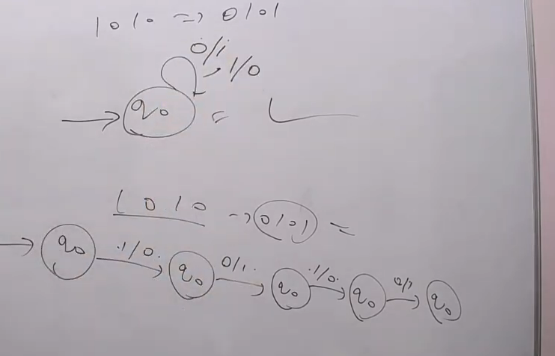 1010 => 0101
0/1
1/0
q0
1010 -> 0101
q0 1/0 q0 0/1 q0 1/0 q0 0/1 q0